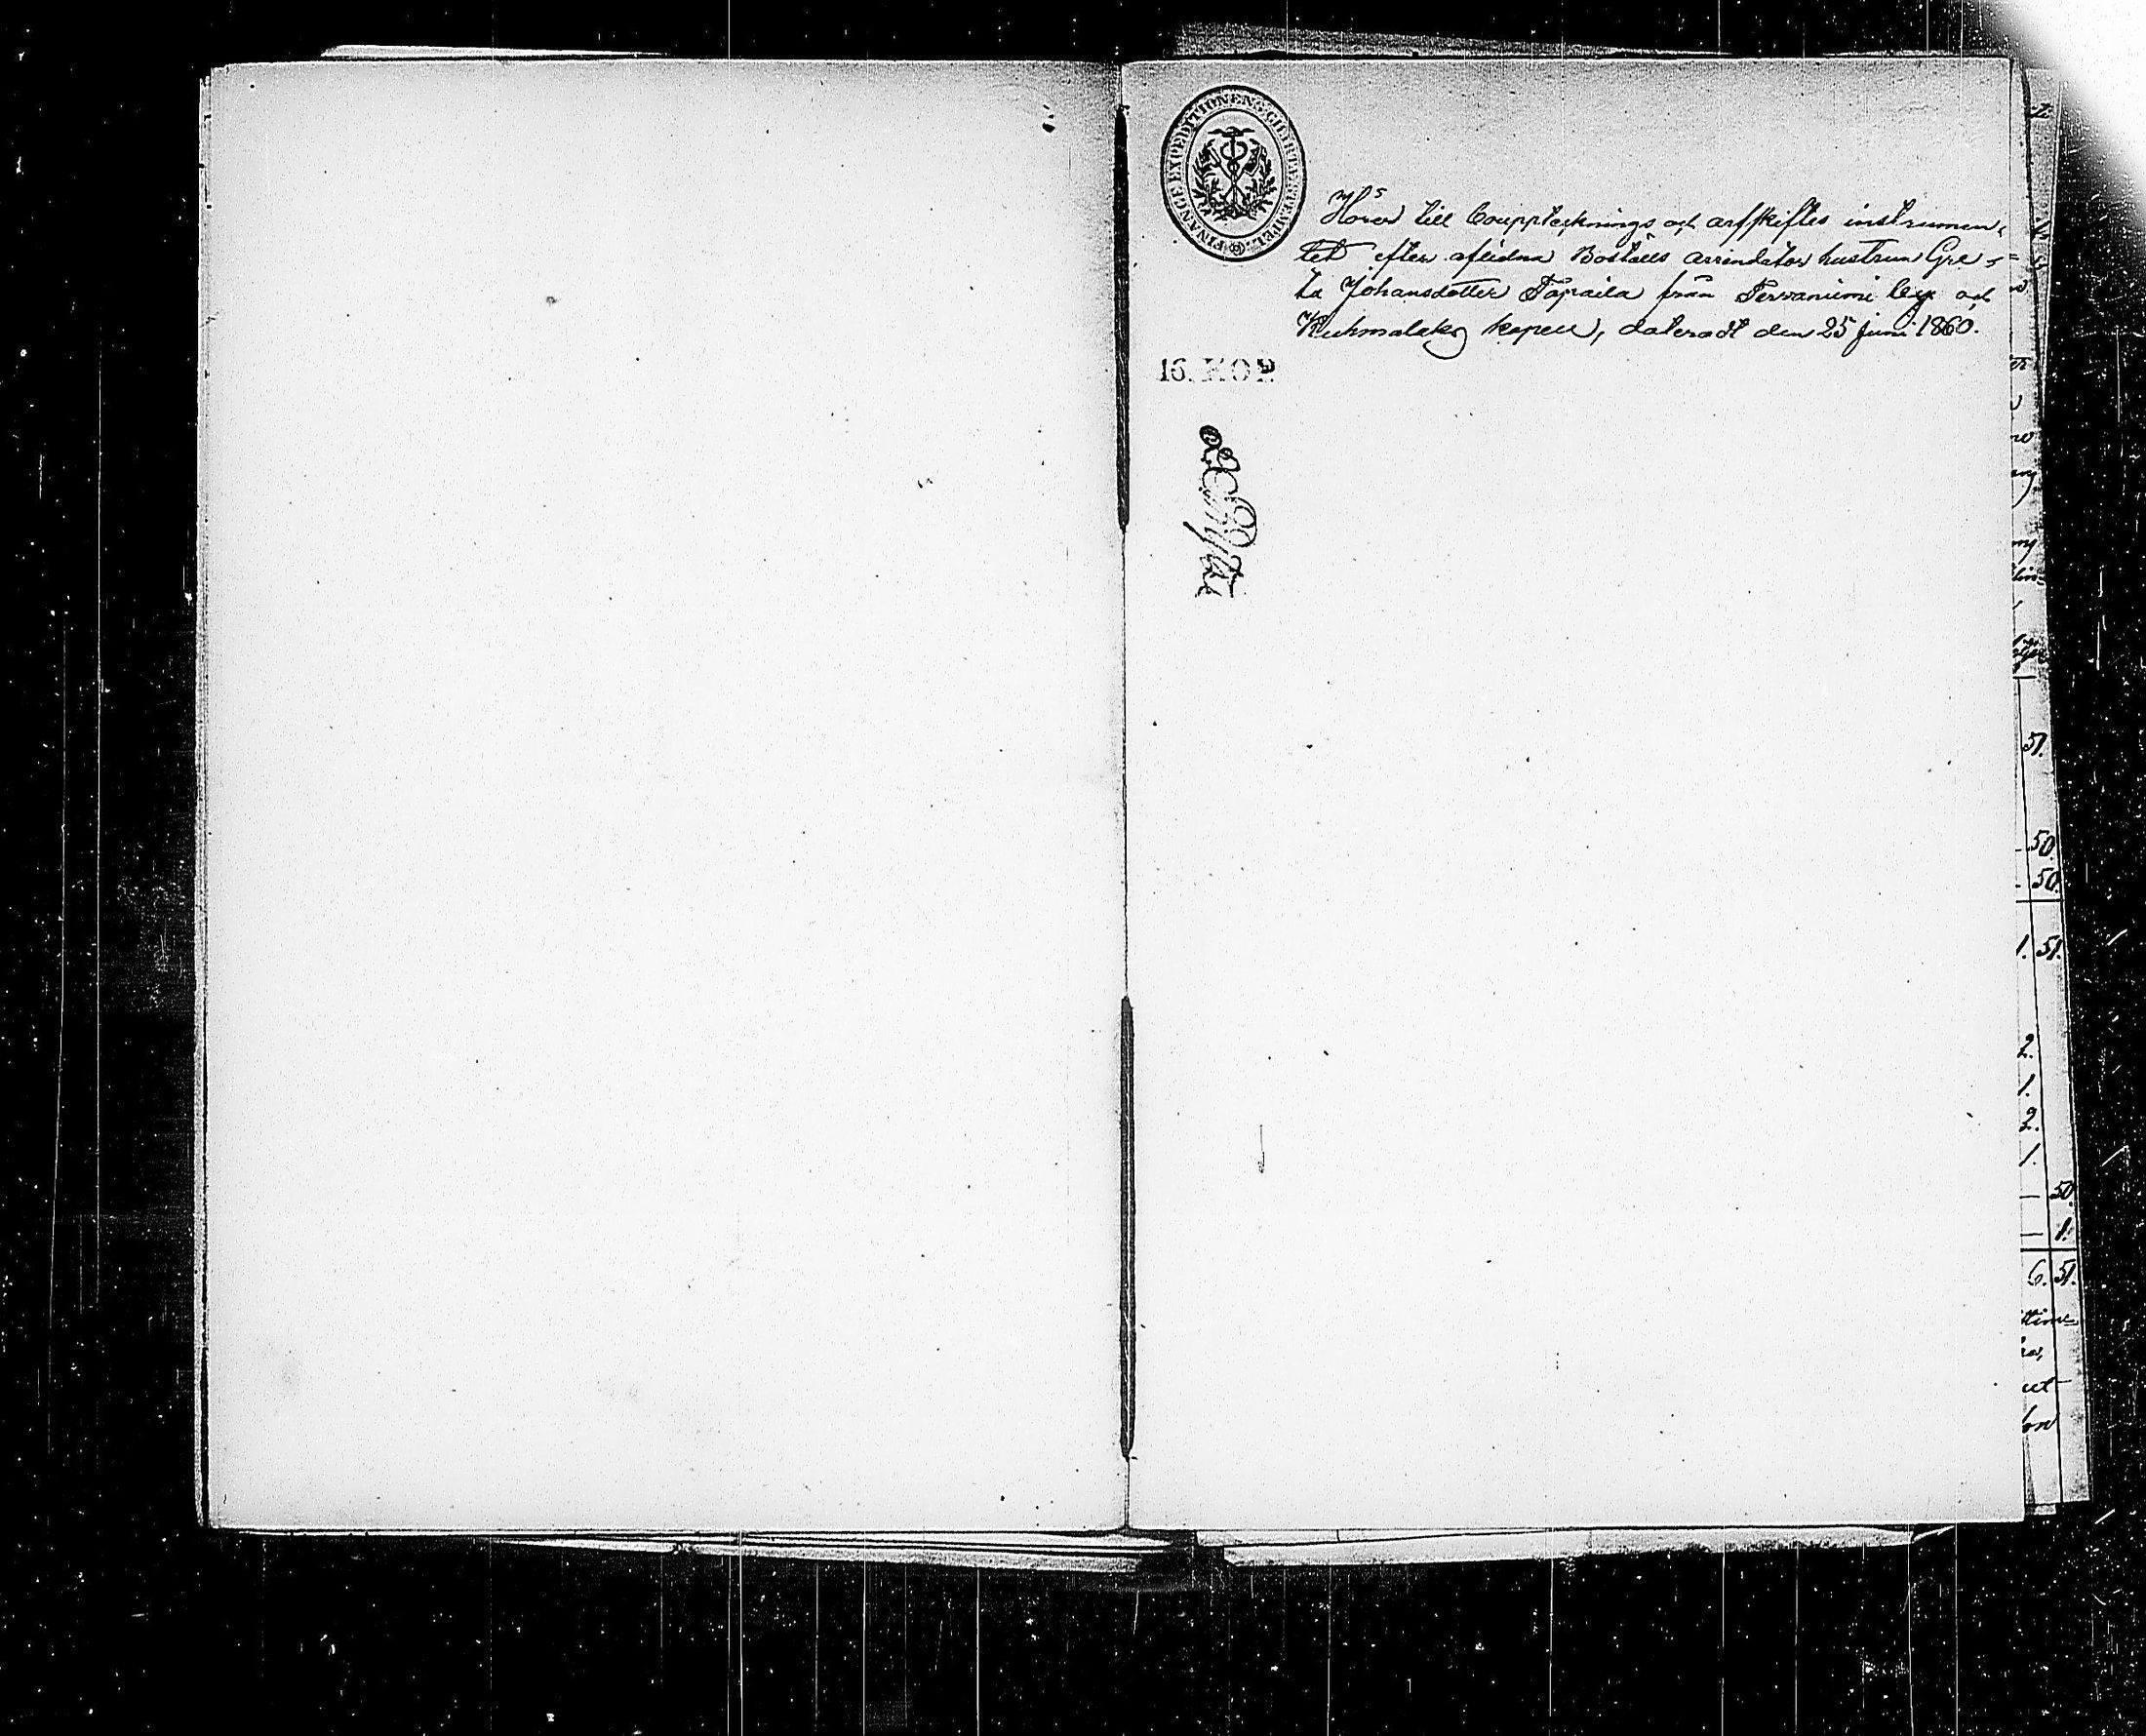 FINANCE EXPEDITIONENS CHARTÆ STEMPEL
Hörer till Bouppteknings och arfskiftes instrumen-
tet efter aflidna Boställs arrendators hustrun Gre-
ta Johansdotter Tapaila från Terraniemi by och
Kuhmalaks kapell, dateradt den 25 Juni 1860.
16. KOP.
51.
50.
50.
1. 51.
2.
1.
2.
1.
— 50.
— 1.
6. 51.